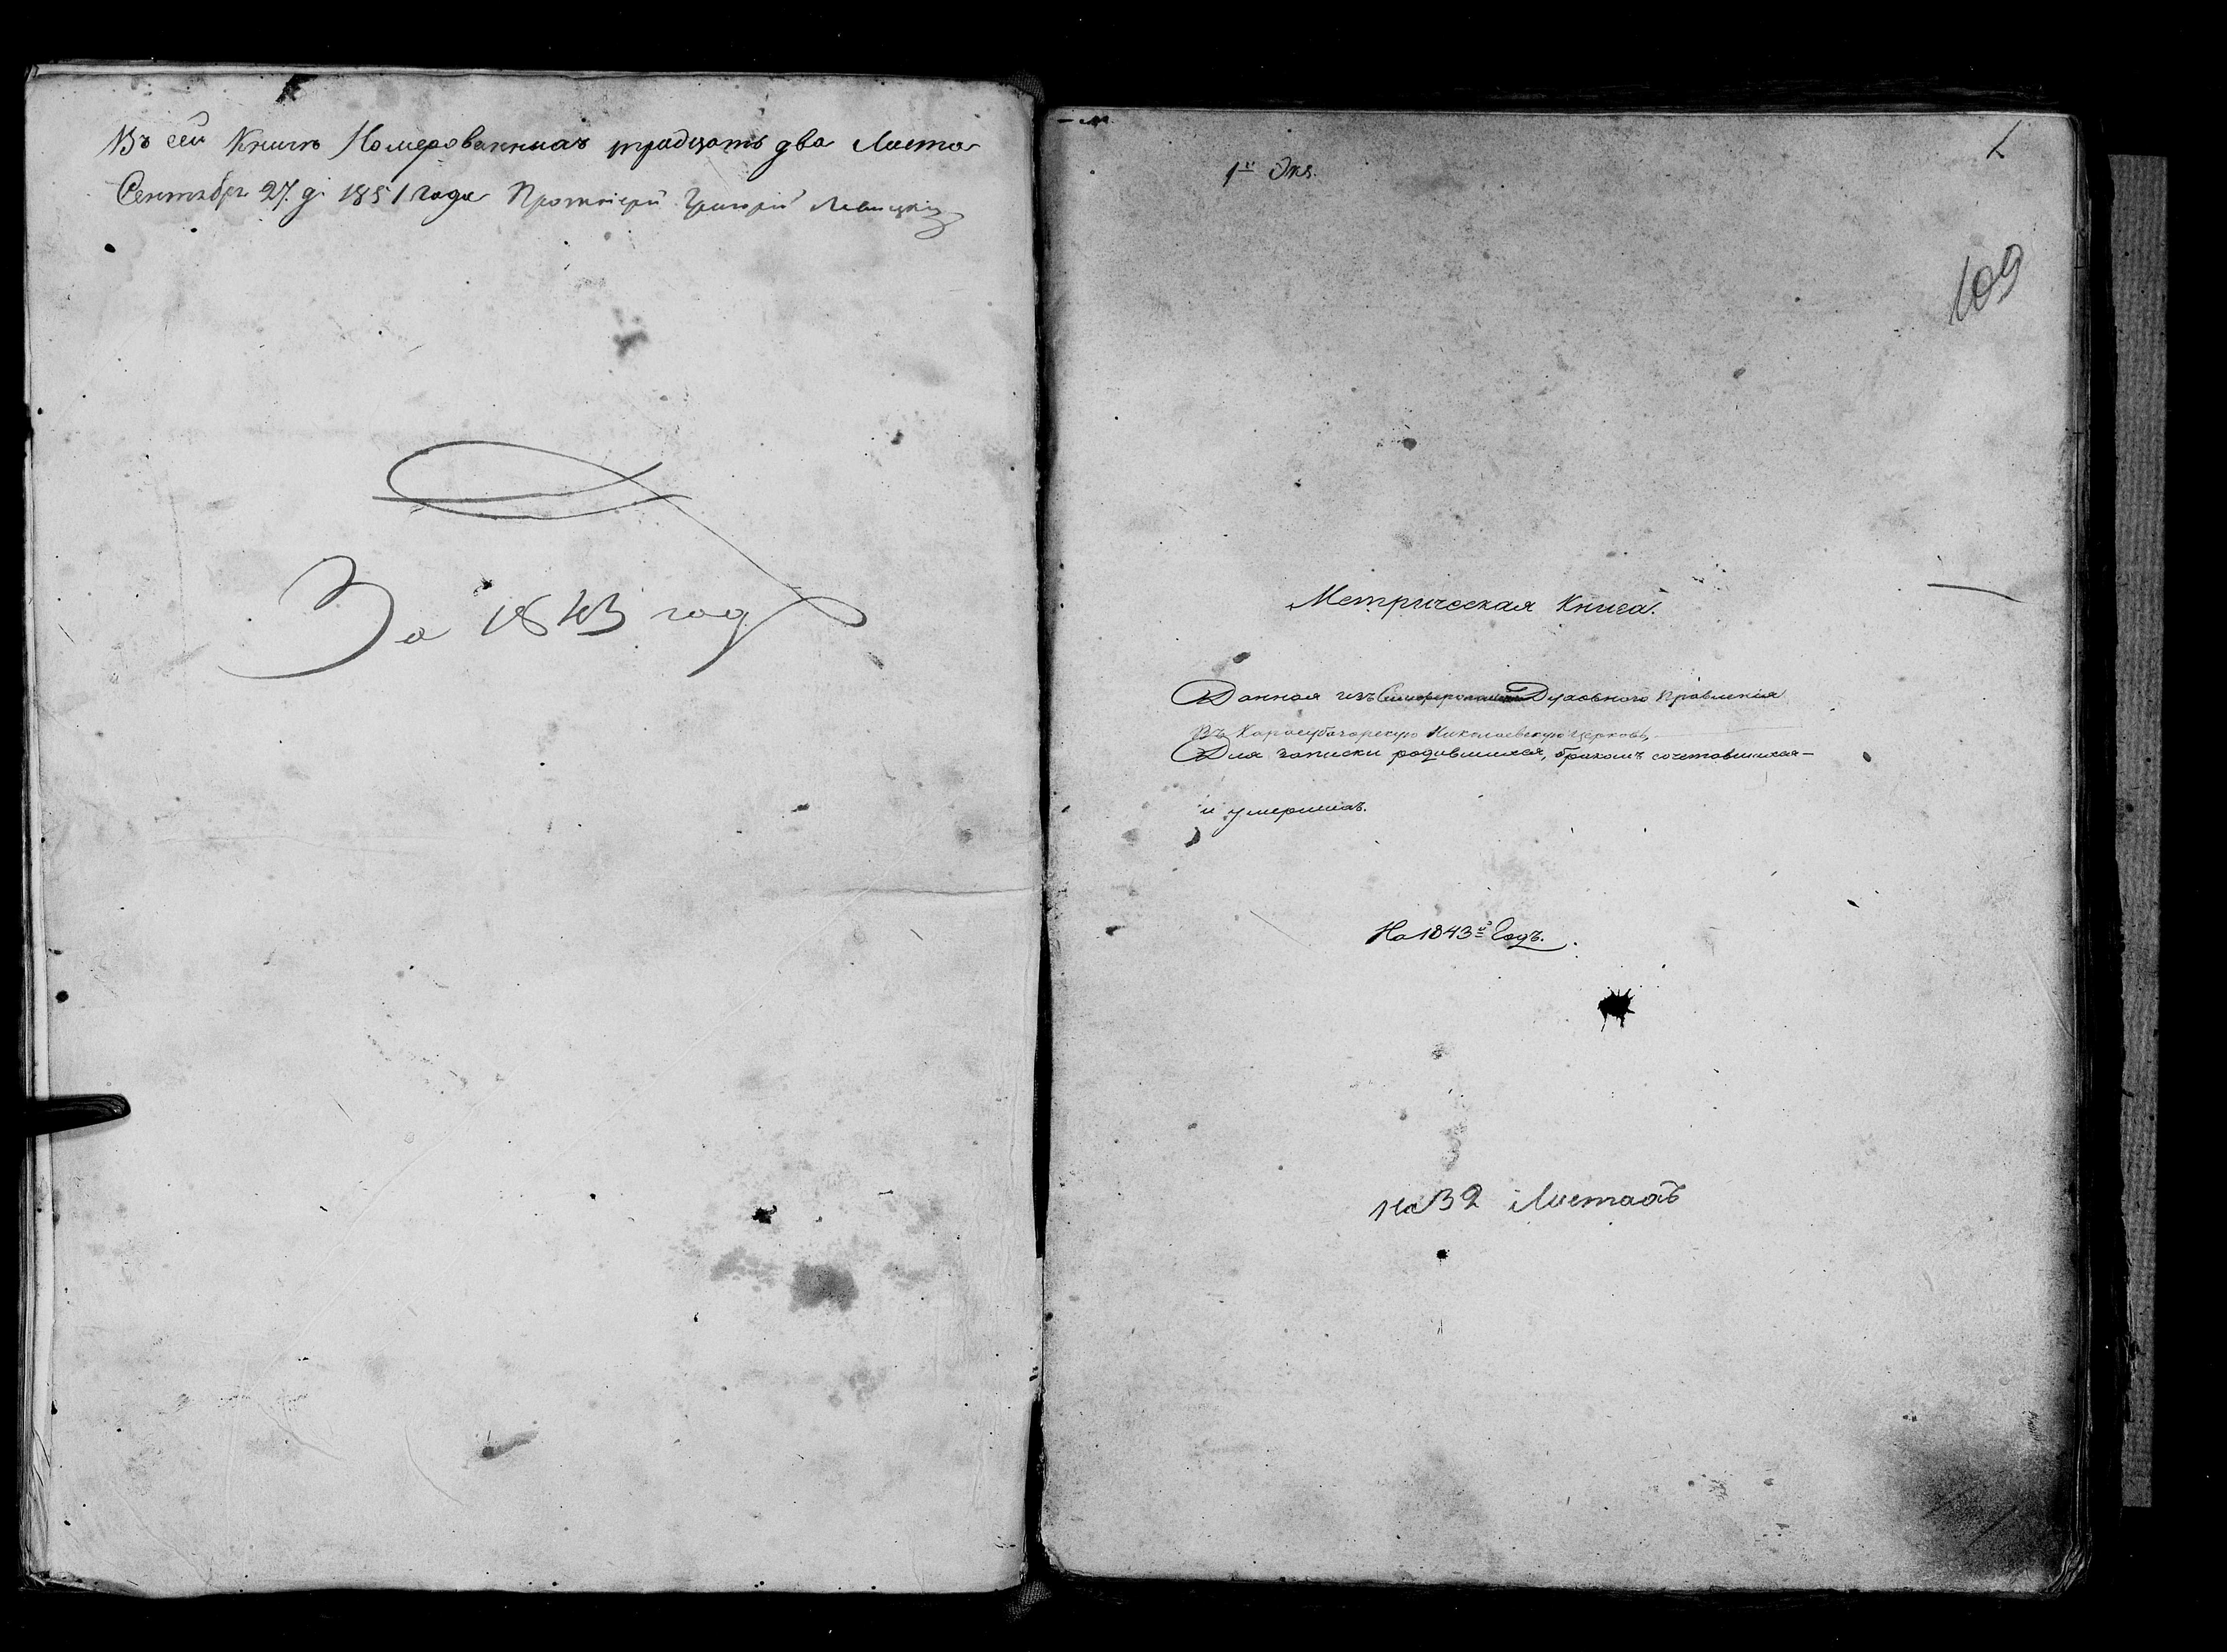 Въ сей Книгѣ Номерованныхъ тридцать два Листа
Сентября 27. д. 1851 года Протоіерей Григорій Левицкій
За 1843 год
1й Экз.
1
109
Метрическая Книга.
Данная изъ Симферопольскаго Духовнаго Правленія
Въ Карасубазарскую Николаевскую Церковь,
Для записки родившихся, бракомъ сочетавшихся
и умершихъ.
На 1843й Годъ.
На 32 Листахъ